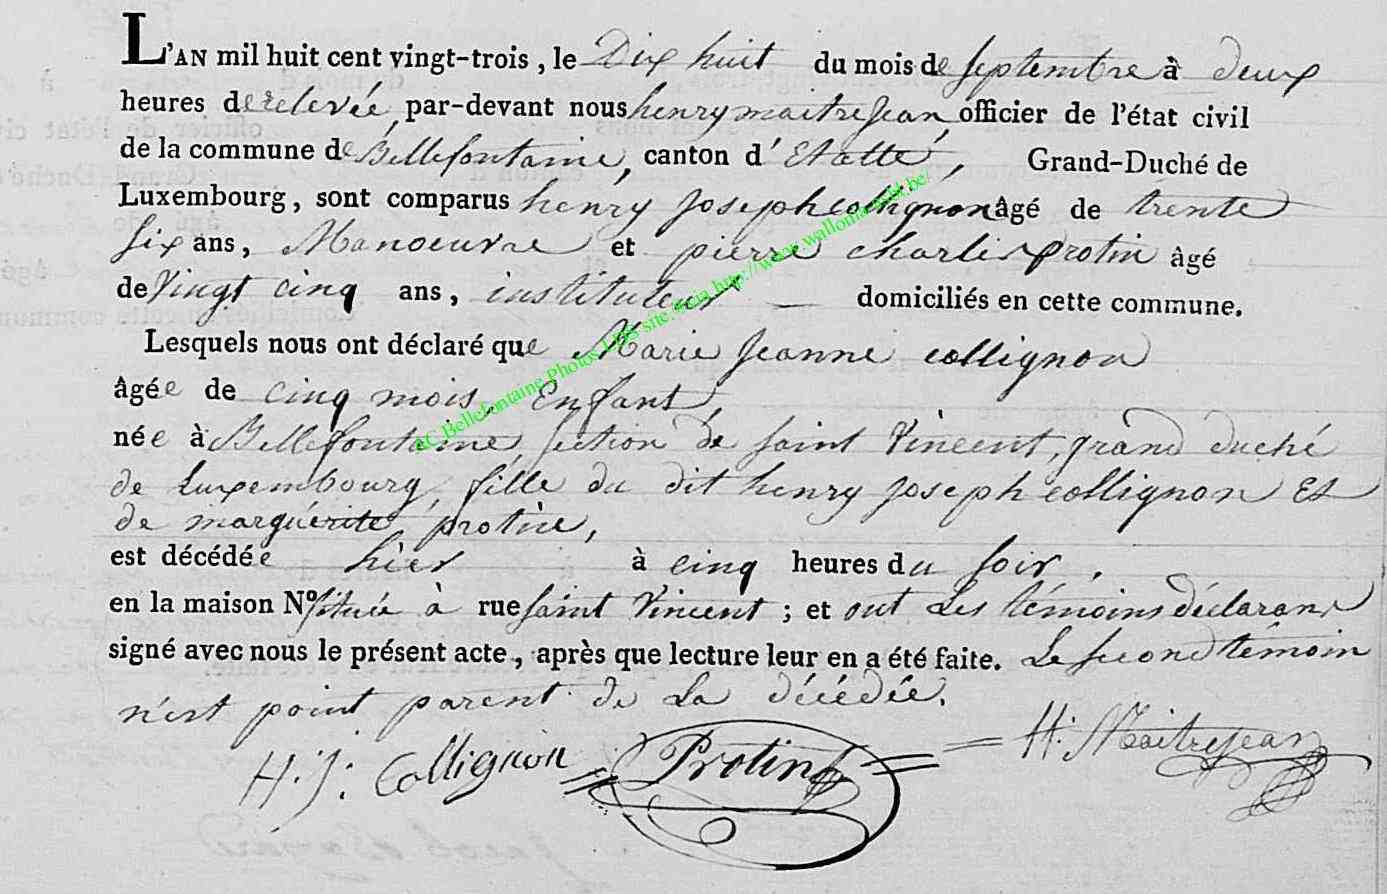 L'AN mil huit cent vingt-trois, le Dix huit du mois de septembre à deux
heures de relevée, par-devant nous henry maitrejean, officier de l'état civil
de la commune de Bellefontaine, canton d'Etalle, Grand-Duché de
Luxembourg, sont comparus henry Joseph collignon âgé de trente
six ans, Manoeuvre et pierre charles protin âgé
de Vingt cinq ans, instituteur — domiciliés en cette commune.
Lesquels nous ont déclaré que Marie Jeanne collignon
âgée de cinq mois, Enfant,
née à Bellefontaine, section de saint Vincent, grand duché
de Luxembourg, fille du dit henry Joseph collignon Et
de marguerite protin,
est décédée hier à cinq heures du soir,
en la maison N° située à rue saint Vincent; et ont Les témoins déclarans
signé avec nous le présent acte, après que lecture leur en a été faite. Le second témoin
n'est point parent de La décédée.
H: J: Collignon Protin H: Maitrejean
AC Bellefontaine Photos LDS site: via http://www.wallonia-asbl.be/